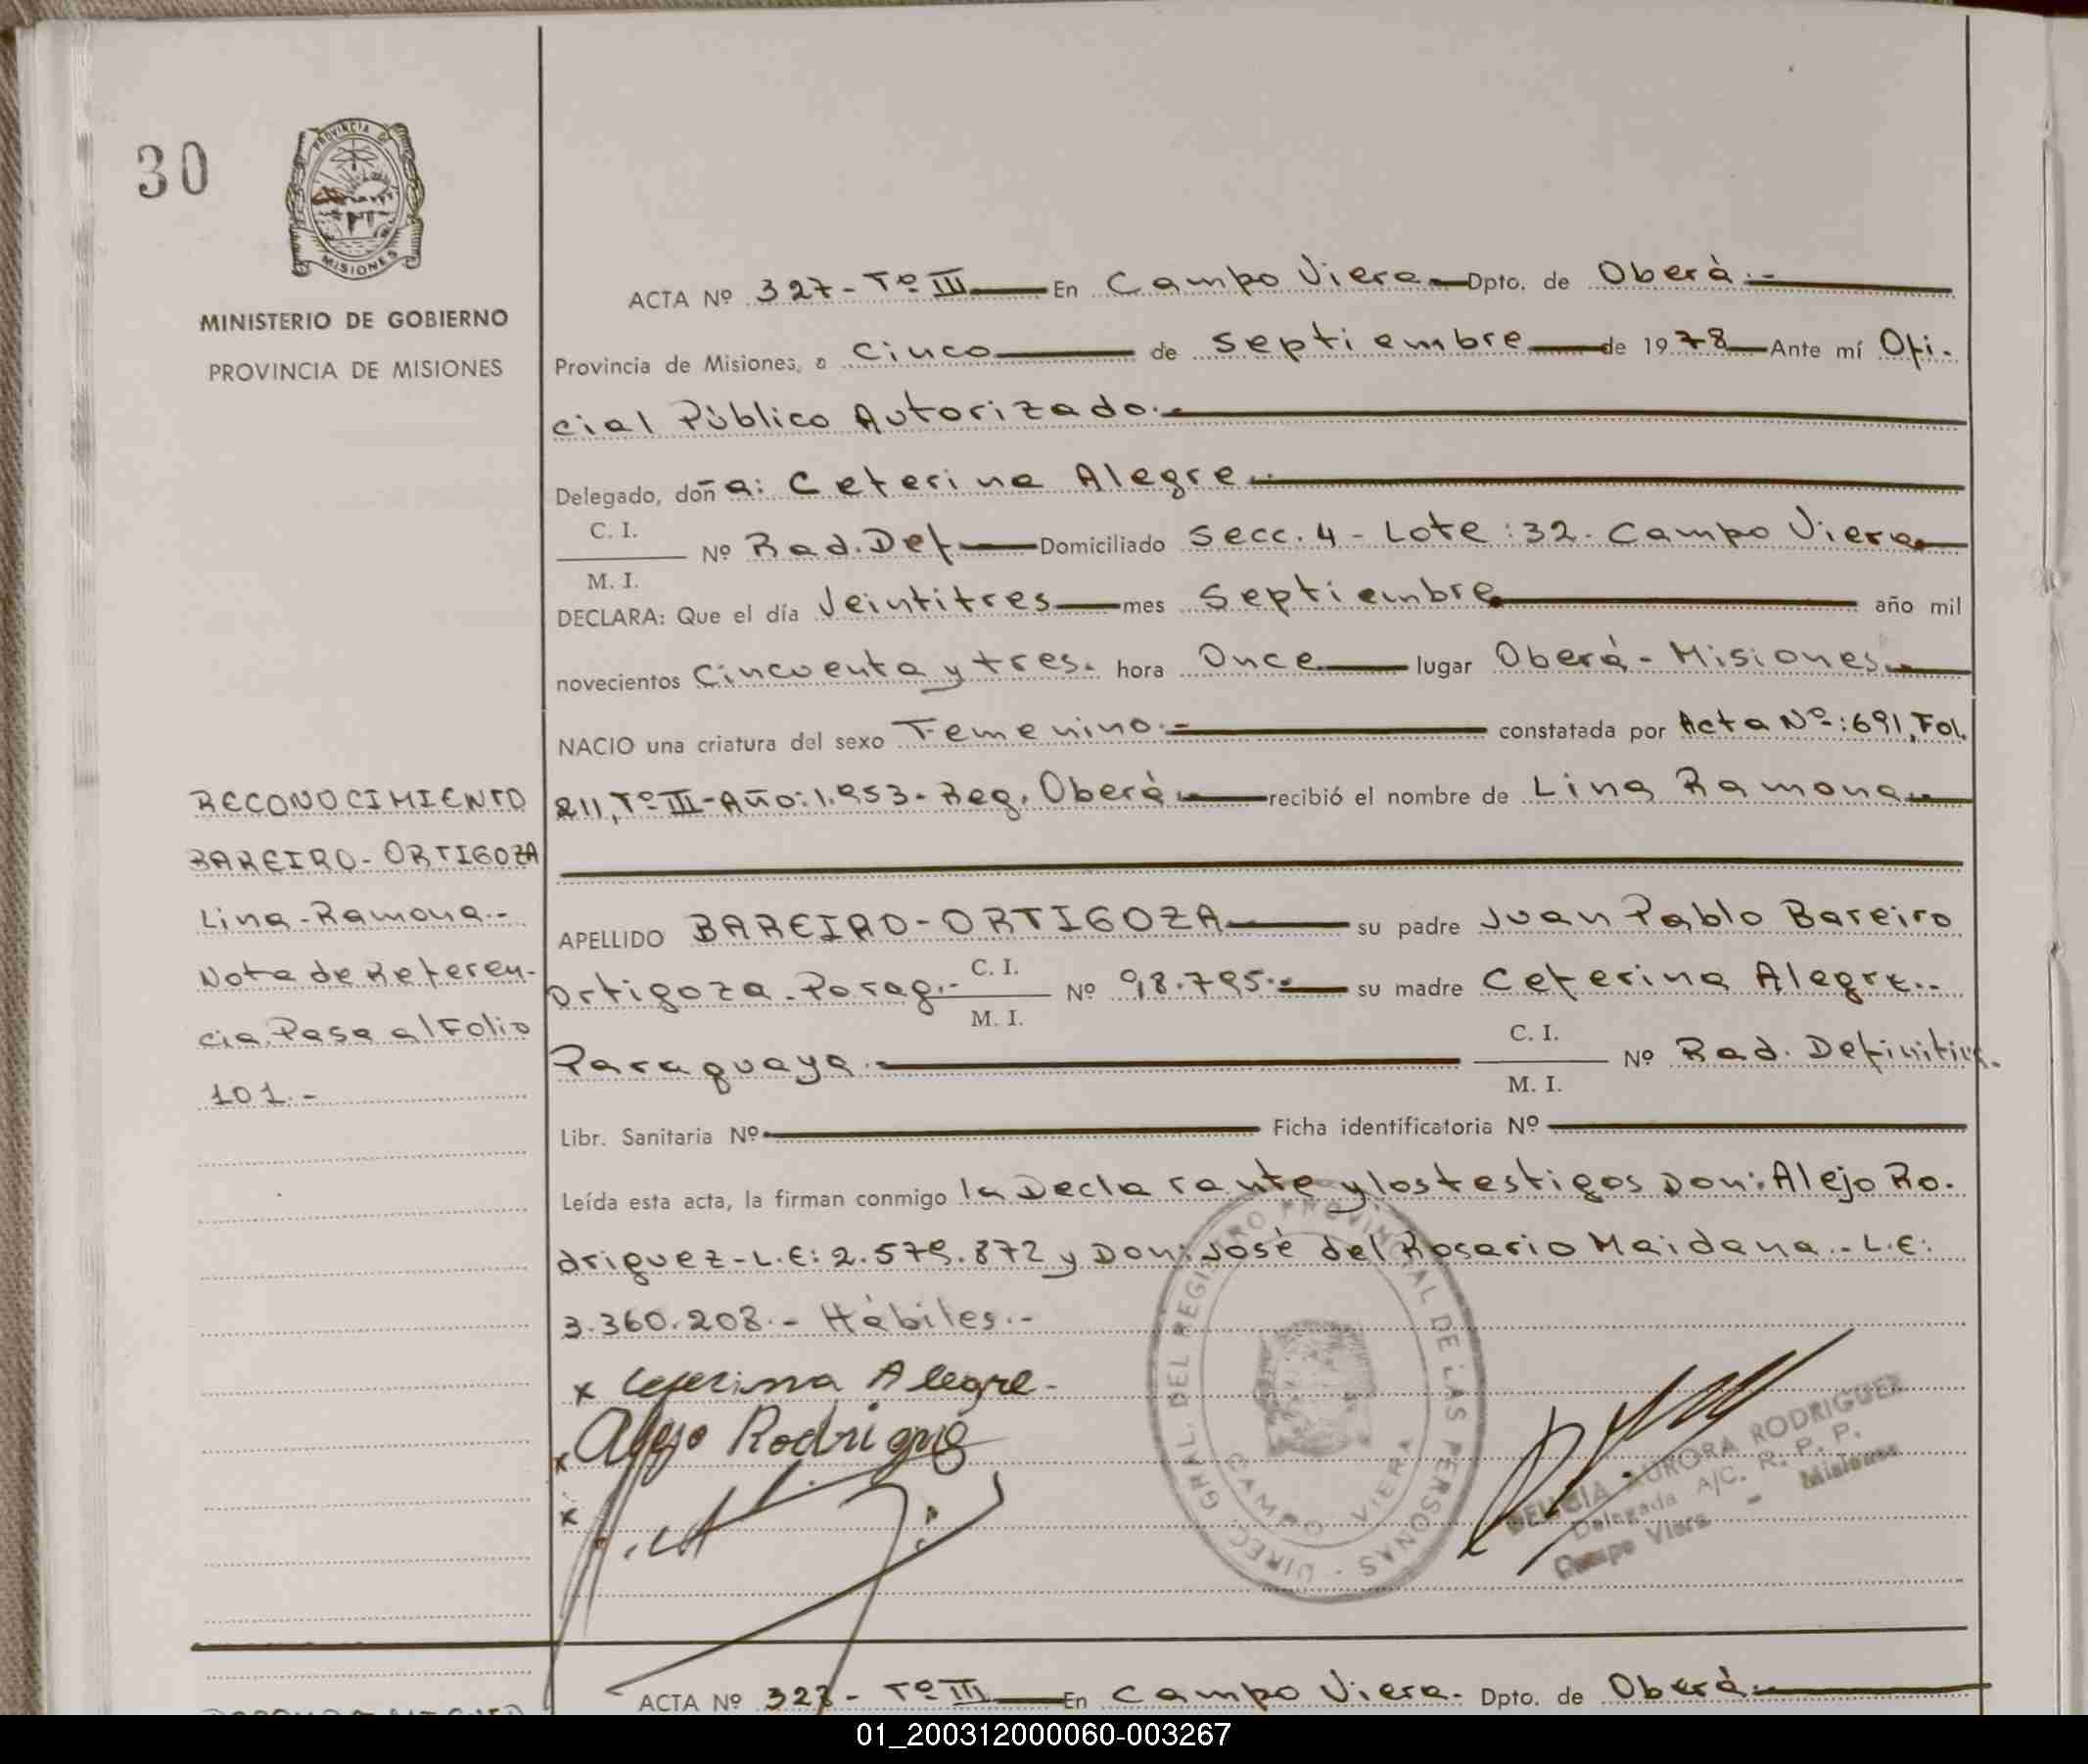 30
PROVINCIA DE
MISIONES
MINISTERIO DE GOBIERNO
PROVINCIA DE MISIONES
ACTA Nº 327 - Tº III En Campo Viera Dpto. de Oberà.-
Provincia de Misiones, a Cinco de Septiembre de 1978 Ante mí Ofi-
cial Pùblico Autorizado.-
Delegado, doña: Ceferina Alegre.-
C. I.
M. I.
Nº Rad. Def Domiciliado Secc. 4 - Lote: 32. Campo Viera
DECLARA: Que el día Veintitres mes Septiembre año mil
novecientos Cincuenta y tres. hora Once lugar Oberà - Misiones.
NACIO una criatura del sexo Femenino.- constatada por Acta Nº: 691, Fol.
211, Tº III - Año: 1.953 - Reg. Oberà.- recibió el nombre de Lina Ramona.-
RECONOCIMIENTO
BAREIRO - ORTIGOZA
Lina - Ramona.-
Nota de Referen-
cia. Pasa al Folio
101.-
APELLIDO BAREIRO - ORTIGOZA su padre Juan Pablo Bareiro
Ortigoza - Parag.- C. I. M. I. Nº 98.795.- su madre Ceferina Alegre.-
Paraguaya.- C. I. M. I. Nº Rad. Definitiva.
Libr. Sanitaria Nº Ficha identificatoria Nº
Leída esta acta, la firman conmigo la Declarante y los testigos Don: Alejo Ro-
driguez - L.E: 2.579.872 y Don: Josè del Rosario Maidana.- L.E:
3.360.208.- Hàbiles.-
x Ceferina Alegre.
x Alejo Rodrigue
x
DIREC. GRAL. DEL REGISTRO PROVINCIAL DE LAS PERSONAS -
CAMPO VIERA
AURORA RODRIGUEZ
Delegada A/C. R. P. P.
Campo Viera - Misiones
ACTA Nº 328 - Tº III En Campo Viera. Dpto. de Oberà.-
01_200312000060-003267